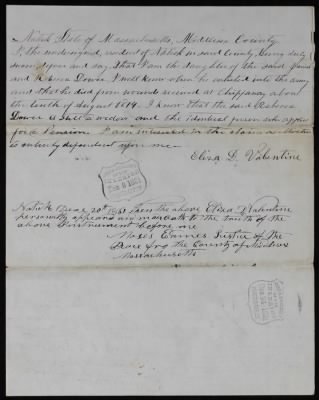 Natick State of Massachusetts, Middlesex County
I, the undersigned, resident of Natick in said County, being duly
sworn depose and say, that I am the daughter of the said
and Rebecca Dower I well know when he enlisted into the army,
and that he died from wounds received at Chippaway about
the tenth of August 1814. I know that the said Rebecca
Dower is still a widow and the identical person who applies
for a Pension. I am interested in the above as Mother
is entirely dependent upon me
Eliza D. Valentine
Natick 20th 1851 then the above Eliza D Valentine
personally appeared and made oath to the truth of the
above Instrument before me
Moses Eames Justice of the
Peace for the County of Middlesex
Massachusetts